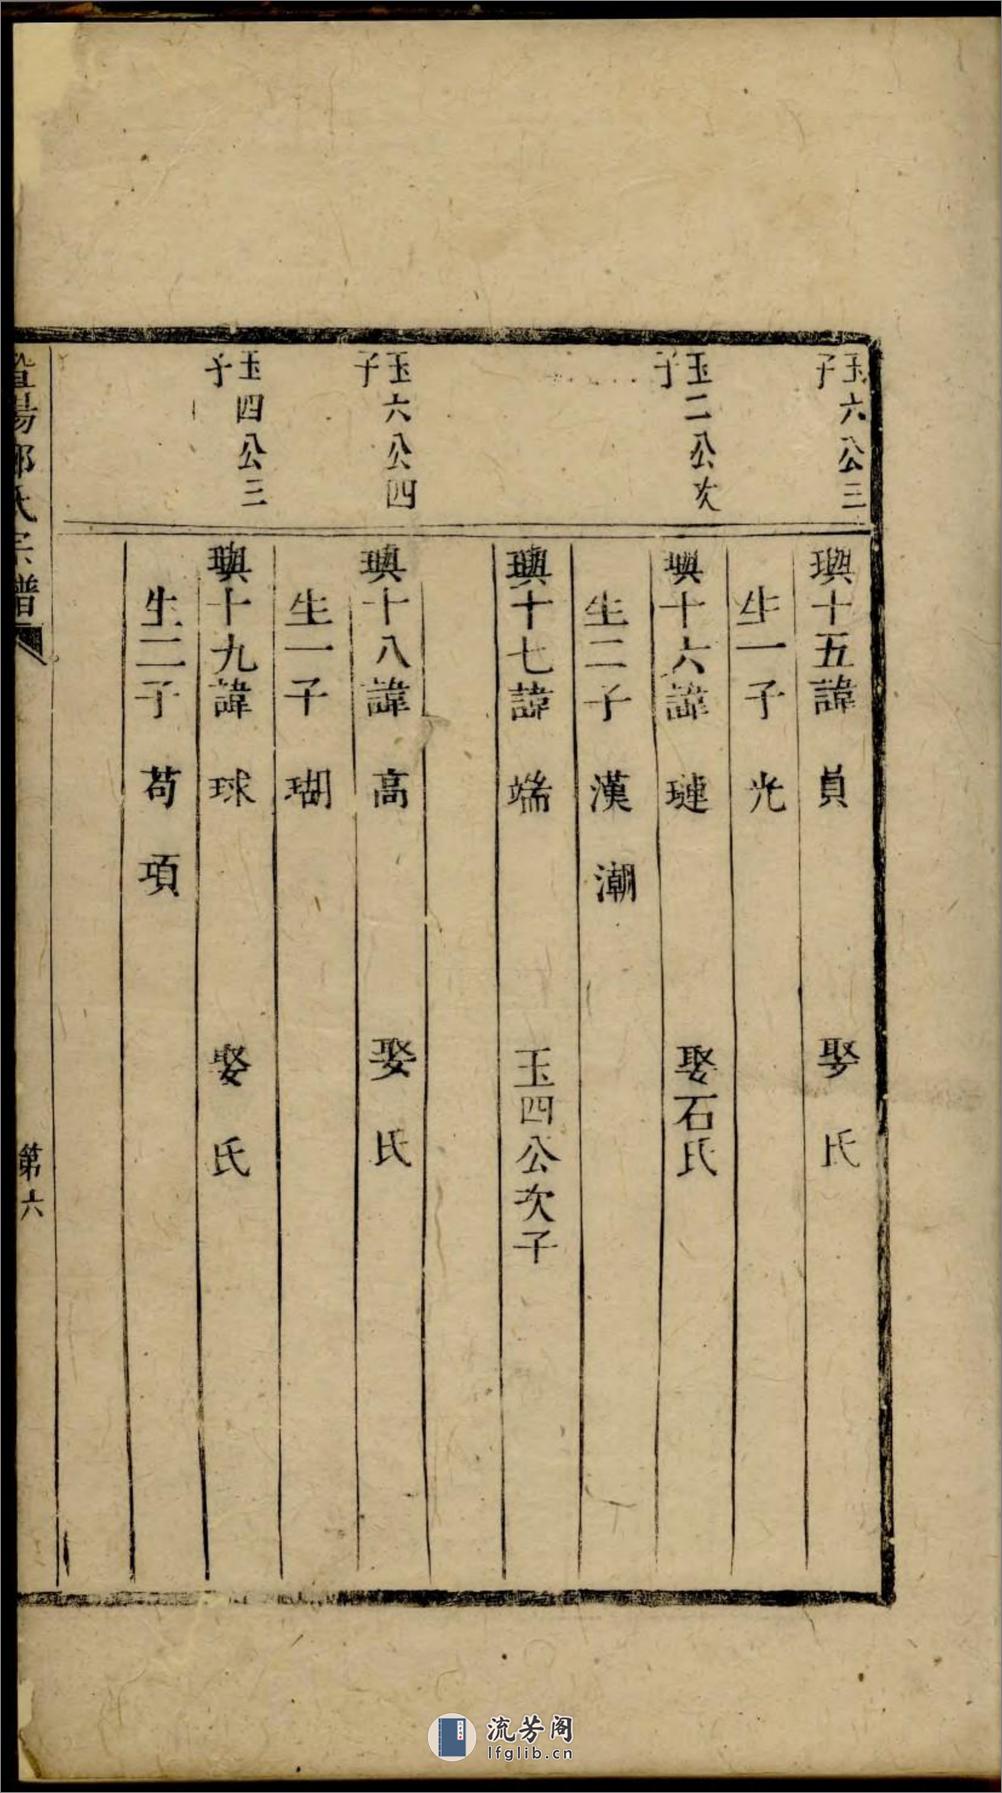 玉六公三
子
璵十五諱 貞 娶 氏
生一子 光
玉二公次
子
璵十六諱 璉 娶石氏
生二子 漢 潮
璵十七諱 端 玉四公次子
玉六公四
子
璵十八諱 高 娶 氏
生一子 瑚
玉四公三
子
璵十九諱 球 娶 氏
生二子 苟 項
陽 氏宗譜
第六
流芳阁
lfglib.cn